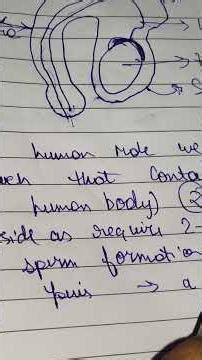 human male we
that conta
human body) (2
side as require 2-
sperm formation
→ a